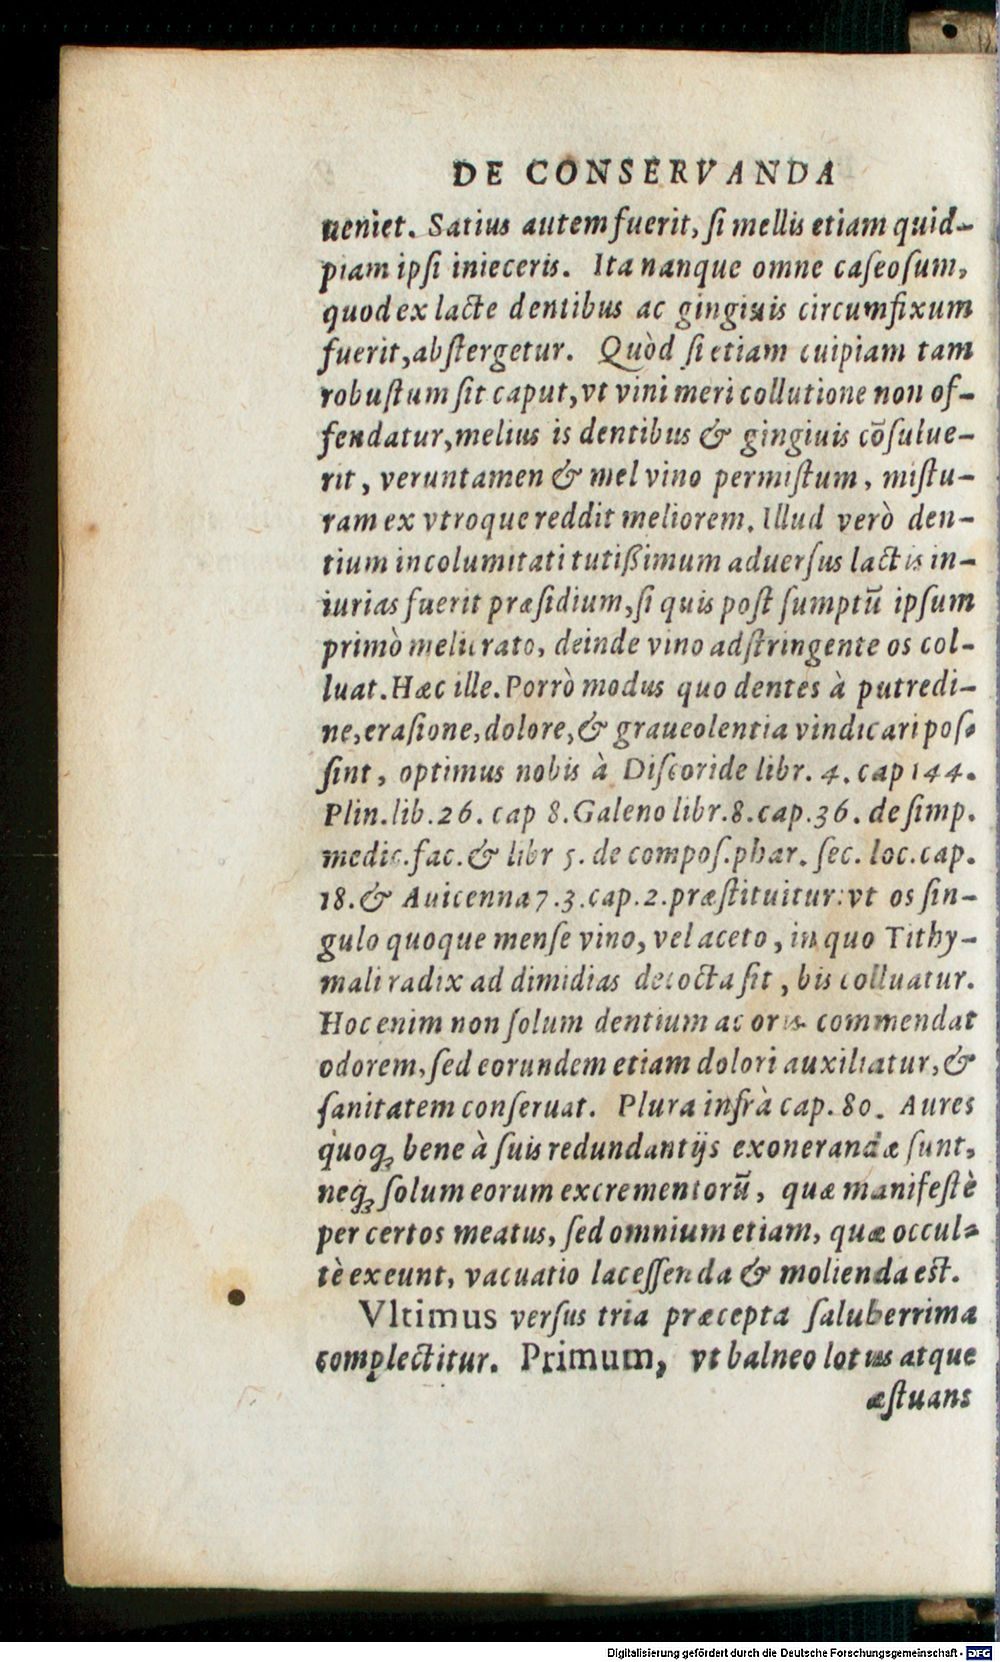 DE CONSERVANDA
ueniet. Satius autem fuerit, ſi mellis etiam quid-
piam ipſi inieceris. Ita nanque omne caſeoſum,
quod ex lacte dentibus ac gingiuis circumfixum
fuerit, abſtergetur. Quòd ſi etiam cuipiam tam
robuſtum ſit caput, vt vini meri collutione non of-
fendatur, melius is dentibus & gingiuis cõſulue-
rit, veruntamen & mel vino permiſtum, miſtu-
ram ex vtroque reddit meliorem. Illud verò den-
tium incolumitati tutißimum aduerſus lactis in-
iurias fuerit præſidium, ſi quis poſt ſumptũ ipſum
primò melicrato, deinde vino adſtringente os col-
luat. Hæc ille. Porrò modus quo dentes à putredi-
ne, eraſione, dolore, & graueolentia vindicari poſ-
ſint, optimus nobis à Diſcoride libr. 4. cap 144.
Plin. lib. 26. cap 8. Galeno libr. 8. cap. 36. de ſimp.
medic. fac. & libr 5. de compoſ. phar. ſec. loc. cap.
18. & Auicenna 7. 3. cap. 2. præſtituitur: vt os ſin-
gulo quoque menſe vino, vel aceto, in quo Tithy-
mali radix ad dimidias decocta ſit, bis colluatur.
Hoc enim non ſolum dentium ac oris commendat
odorem, ſed eorundem etiam dolori auxiliatur, &
ſanitatem conſeruat. Plura infrà cap. 80. Aures
quoqꝫ bene à ſuis redundantijs exonerandæ ſunt,
neqꝫ ſolum eorum excrementorũ, quæ manifeſtè
per certos meatus, ſed omnium etiam, quæ occul-
tè exeunt, vacuatio laceſſenda & molienda eſt.
Vltimus verſus tria præcepta ſaluberrima
complectitur. Primum, vt balneo lotus atque
æſtuans
Digitalisierung gefördert durch die Deutsche Forschungsgemeinschaft - DFG